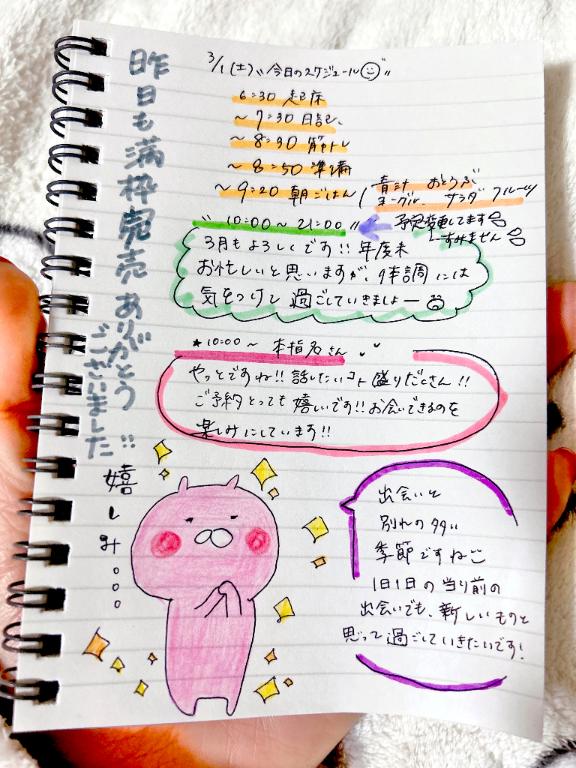 昨日も満枠完売ありがとうございました!!
嬉しみ。。。
3/1(土)"今日のスケジュール"
6:30 起床
~7:30 日記
~8:30 筋トレ
~8:50 準備
~9:20 朝ごはん
青汁 おとうふ
ヨーグル、サラダ フルーツ
"10:00~21:00"
予定変更してます
すみません
3月もよろしくです!! 年度末
お忙しいと思いますが、体調には
気をつけて過ごしていきましょー
★10:00~ 本指名さん
やっとですね!! 話したいコト盛りだくさん!!
ご予約とっても嬉しいです!! お会いできるのを
楽しみにしています!!
出会いと
別れの多い
季節ですねご
1日1日の当り前の
出会いでも、新しいものと
思って過ごしていきたいです!